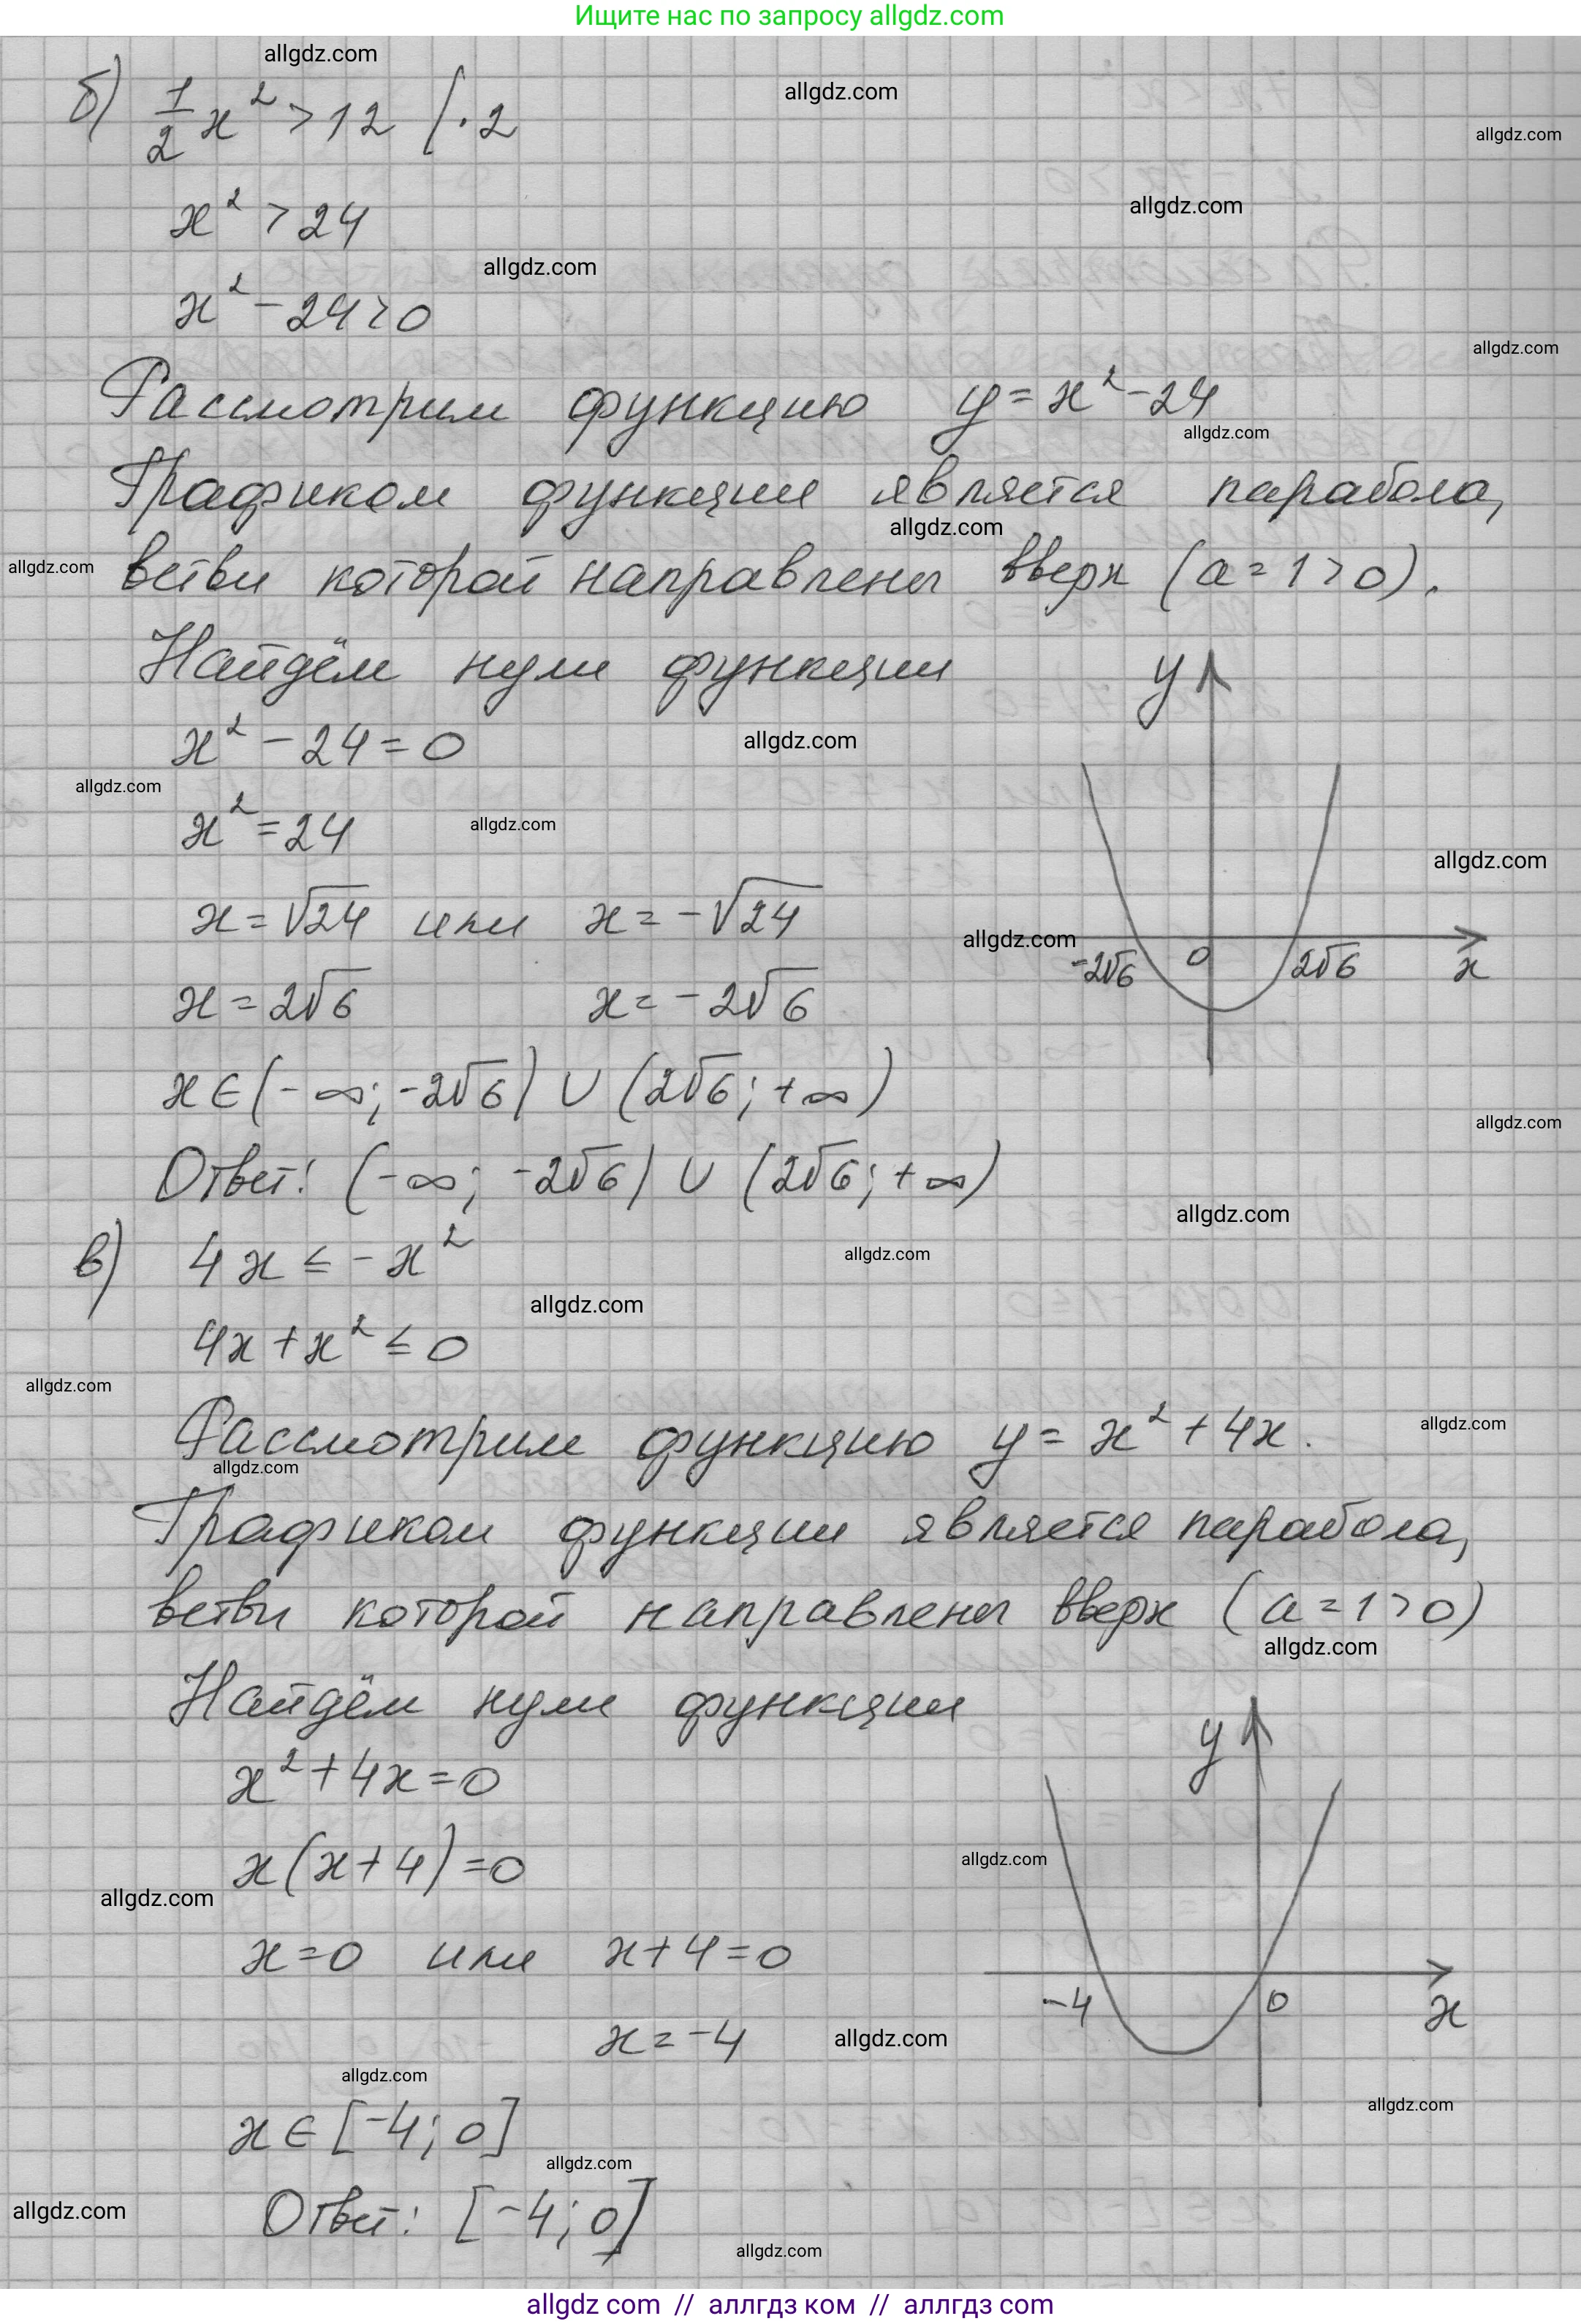 Ищите нас по запросу allgdz.com
allgdz.com
б) 1/2 x² > 12 | · 2
allgdz.com
allgdz.com
x² > 24
allgdz.com
allgdz.com
x² - 24 > 0
allgdz.com
Рассмотрим функцию y = x² - 24
allgdz.com
Графиком функции является парабола,
allgdz.com
allgdz.com
ветви которой направлены вверх (a = 1 > 0).
Найдём нули функции
y
x² - 24 = 0
allgdz.com
allgdz.com
x² = 24
allgdz.com
allgdz.com
x = √24 или x = -√24
allgdz.com
-2√6 0 2√6 x
x = 2√6 x = -2√6
x ∈ (-∞; -2√6) ∪ (2√6; +∞)
allgdz.com
Ответ: (-∞; -2√6) ∪ (2√6; +∞)
allgdz.com
в) 4x ≤ -x²
allgdz.com
allgdz.com
4x + x² ≤ 0
allgdz.com
Рассмотрим функцию y = x² + 4x.
allgdz.com
allgdz.com
Графиком функции является парабола,
ветви которой направлены вверх (a = 1 > 0)
allgdz.com
Найдём нули функции
y
x² + 4x = 0
x(x + 4) = 0
allgdz.com
allgdz.com
x = 0 или x + 4 = 0
-4 0 x
x = -4
allgdz.com
allgdz.com
allgdz.com
x ∈ [-4; 0]
allgdz.com
allgdz.com
Ответ: [-4; 0]
allgdz.com
allgdz com // аллгдз ком // аллгдз com